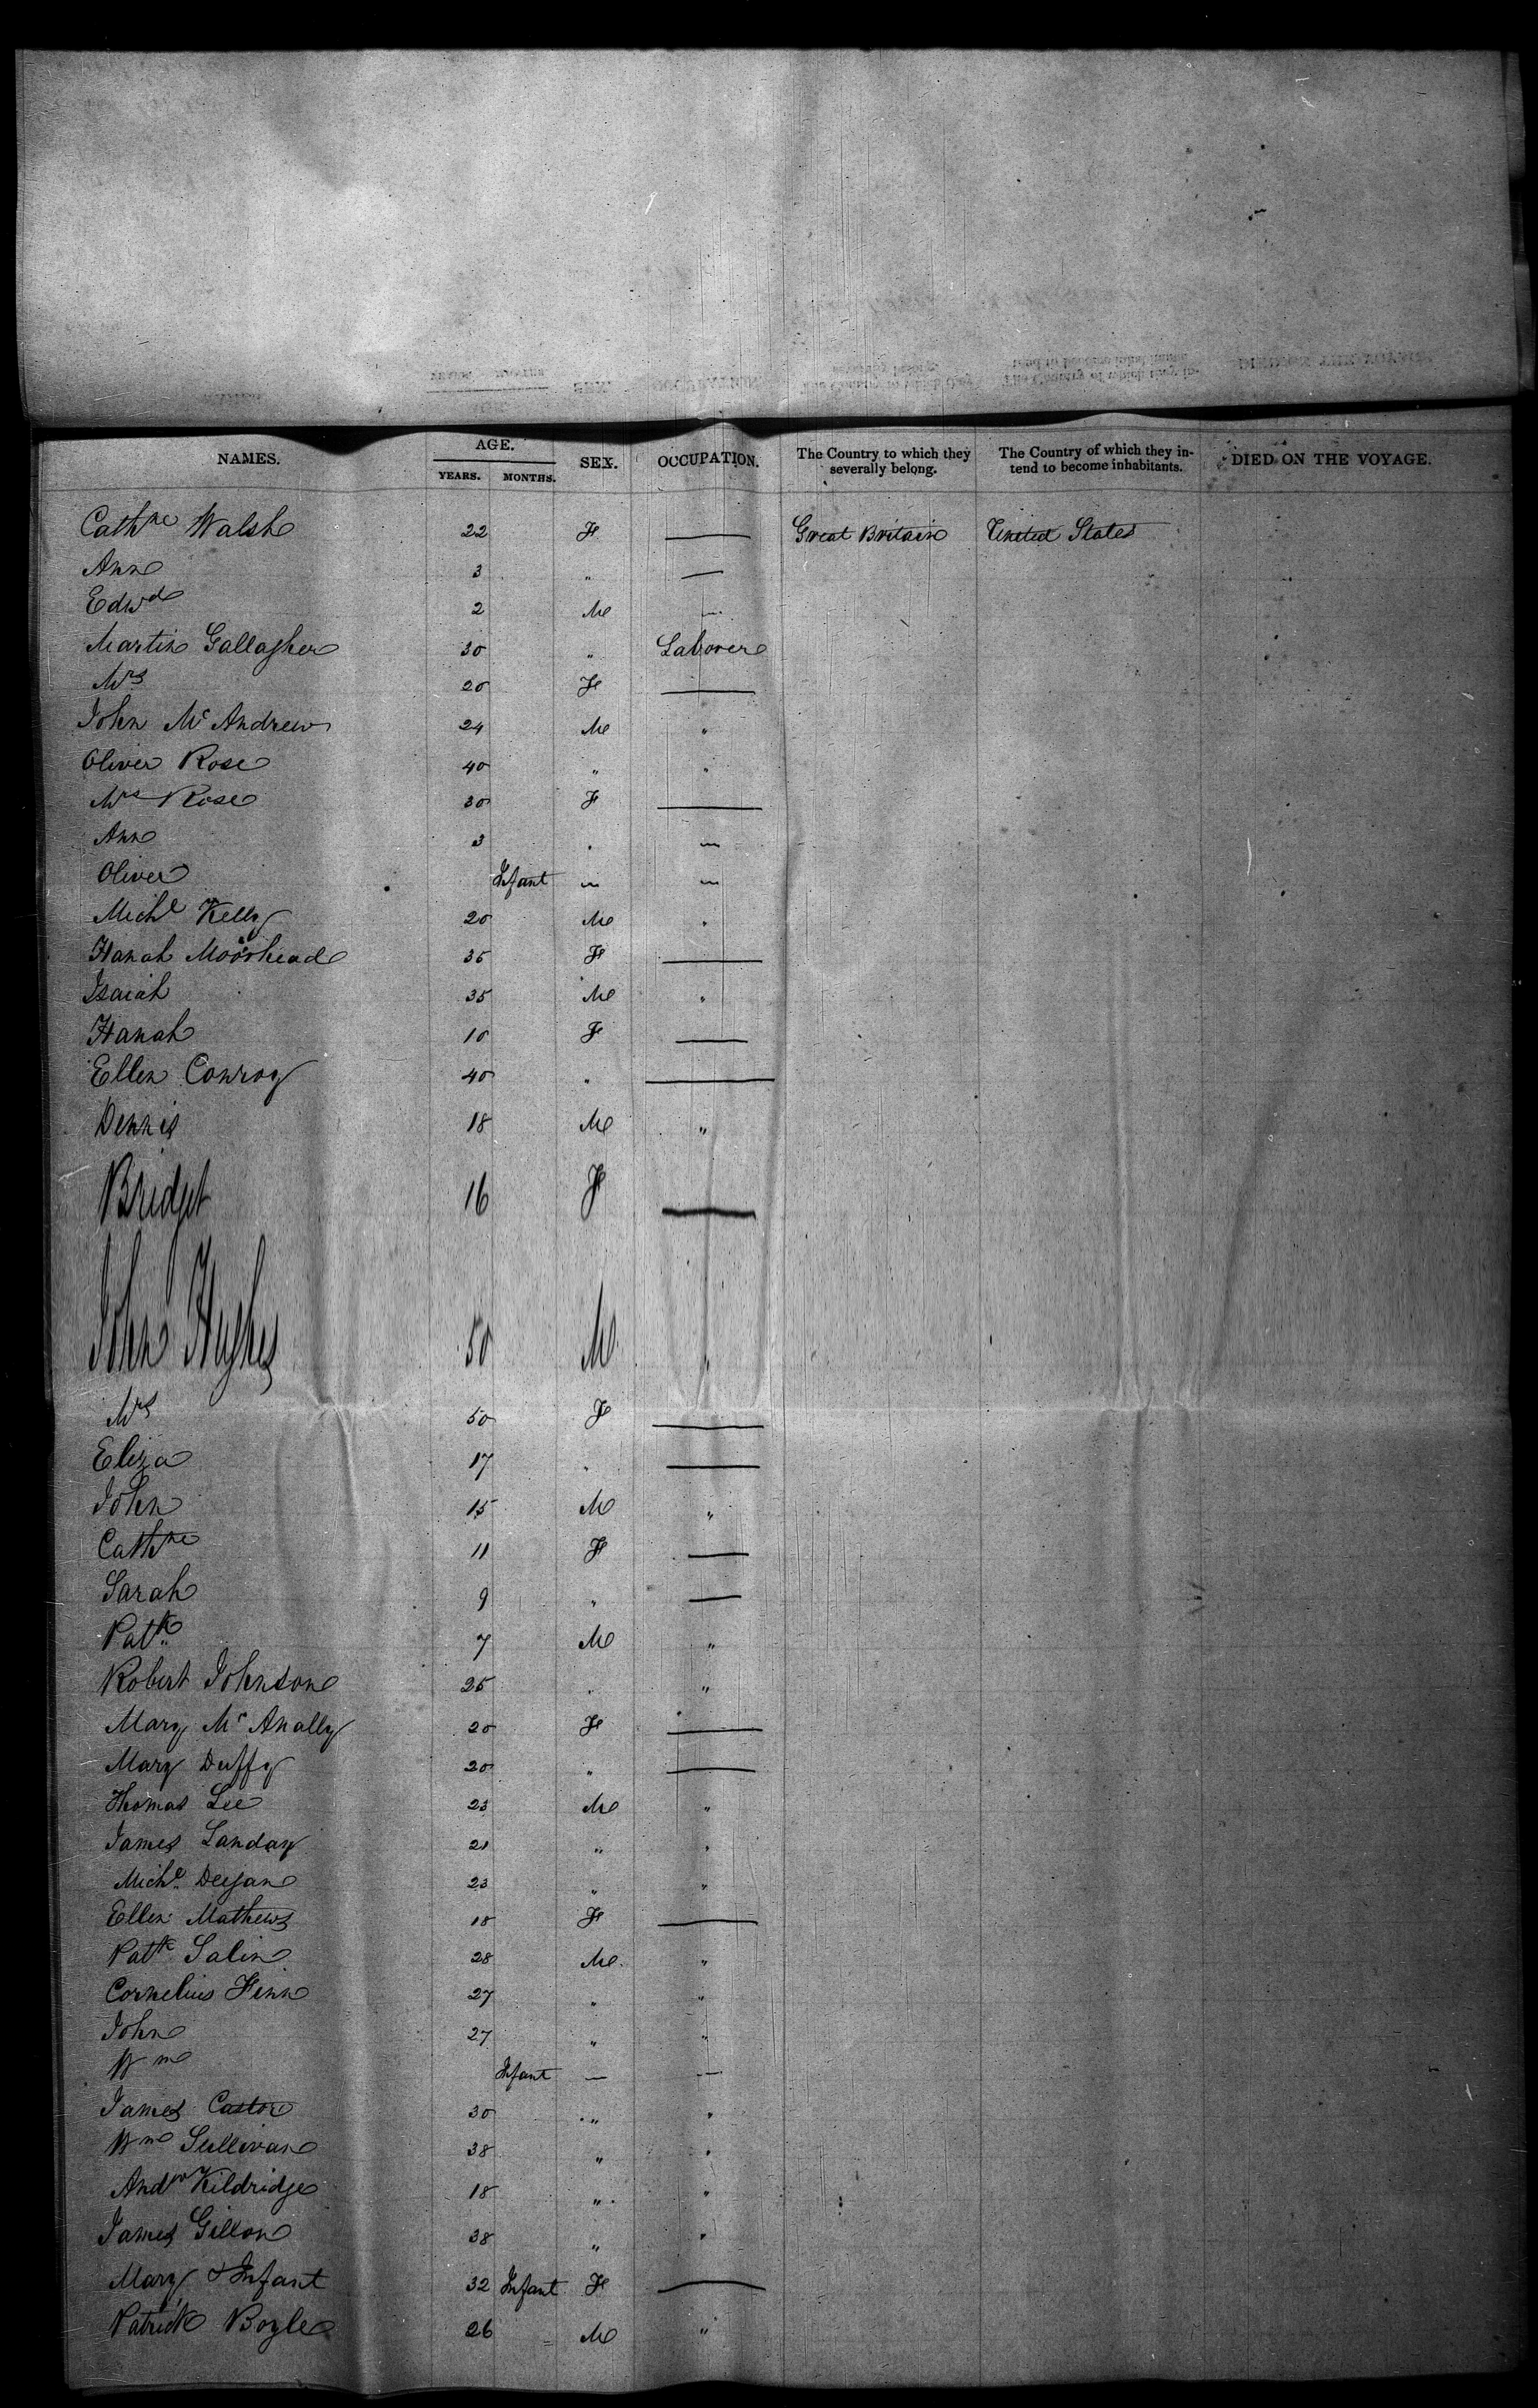 NAMES. AGE. YEARS. MONTHS. SEX. OCCUPATION. The Country to which they severally belong. The Country of which they intend to become inhabitants. DIED ON THE VOYAGE.
Cathne Walsh 22 F — Great Britain United States
Ann 3 " —
Edwd 2 M —
Martin Gallagher 30 " Laborer
Mrs 20 F —
John Mc Andrew 24 M "
Oliver Rose 40 " "
Mrs Rose 30 F —
Ann 3 " —
Oliver Infant — —
Michl Kelly 20 M "
Hanah Moorhead 35 F —
Isaiah 35 M "
Hanah 10 F —
Ellen Conroy 40 " —
Dennis 18 M "
Bridget 16 F —
John Hughes 50 M "
Mrs 50 F —
Eliza 17 " —
John 15 M "
Cathne 11 F —
Sarah 9 " —
Patk 7 M "
Robert Johnson 25 " "
Mary Mc Anally 20 F —
Mary Duffy 20 " —
Thomas Lee 23 M "
James Landay 21 " "
Michl Deegan 23 " "
Ellen Mathews 18 F —
Patk Salin 28 M "
Cornelius Finn 27 " "
John 27 " "
Wm Infant — —
James Castor 30 " "
Wm Sullivan 38 " "
Andw Kildridge 18 " "
James Gillon 38 " "
Mary & Infant 32 Infant F —
Patrick Boyle 26 M "